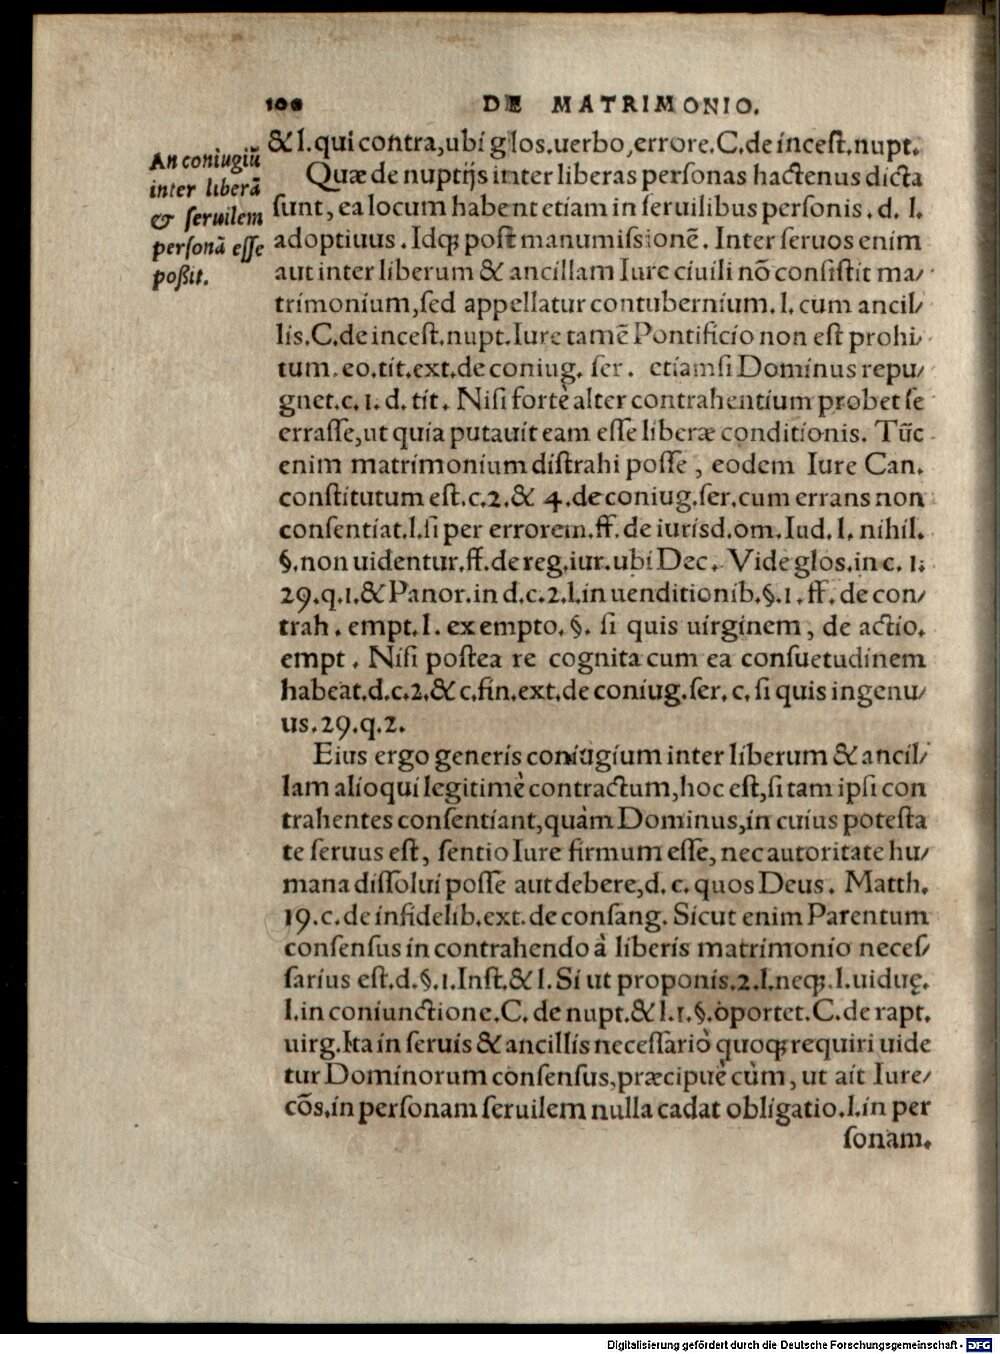 100 DE MATRIMONIO.
An coniugiũ
inter liberã
& seruilem
personã esse
possit.
& l. qui contra, ubi glos. uerbo, errore. C. de incest. nupt.
Quæ de nuptijs inter liberas personas hactenus dicta
sunt, ea locum habent etiam in seruilibus personis. d. l.
adoptiuus. Idq; post manumissionẽ. Inter seruos enim
aut inter liberum & ancillam Iure ciuili nõ consistit ma/
trimonium, sed appellatur contubernium. l. cum ancil/
lis. C. de incest. nupt. Iure tamẽ Pontificio non est prohi/
tum. eo. tit. ext. de coniug. ser. etiamsi Dominus repu/
gnet. c. 1. d. tit. Nisi fortè alter contrahentium probet se
errasse, ut quia putauit eam esse liberæ conditionis. Tũc
enim matrimonium distrahi posse, eodem Iure Can.
constitutum est. c. 2. & 4. de coniug. ser. cum errans non
consentiat. l. si per errorem. ff. de iurisd. om. Iud. l. nihil.
§. non uidentur. ff. de reg. iur. ubi Dec. Vide glos. in c. 1.
29. q. 1. & Panor. in d. c. 2. l. in uenditionib. §. 1. ff. de con/
trah. empt. l. ex empto. §. si quis uirginem, de actio.
empt. Nisi postea re cognita cum ea consuetudinem
habeat. d. c. 2. & c. fin. ext. de coniug. ser. c. si quis ingenu/
us. 29. q. 2.
Eius ergo generis coniugium inter liberum & ancil/
lam alioqui legitimè contractum, hoc est, si tam ipsi con
trahentes consentiant, quàm Dominus, in cuius potesta
te seruus est, sentio Iure firmum esse, nec autoritate hu/
mana dissolui posse aut debere, d. c. quos Deus. Matth.
19. c. de infidelib. ext. de consang. Sicut enim Parentum
consensus in contrahendo à liberis matrimonio neces/
sarius est. d. §. 1. Inst. & l. Si ut proponis. 2. l. neq;. l. uiduę.
l. in coniunctione. C. de nupt. & l. 1. §. oportet. C. de rapt.
uirg. Ita in seruis & ancillis necessariò quoq; requiri uide
tur Dominorum consensus, præcipuè cùm, ut ait Iure/
cõs. in personam seruilem nulla cadat obligatio. l. in per
sonam.
Digitalisierung gefördert durch die Deutsche Forschungsgemeinschaft - DFG